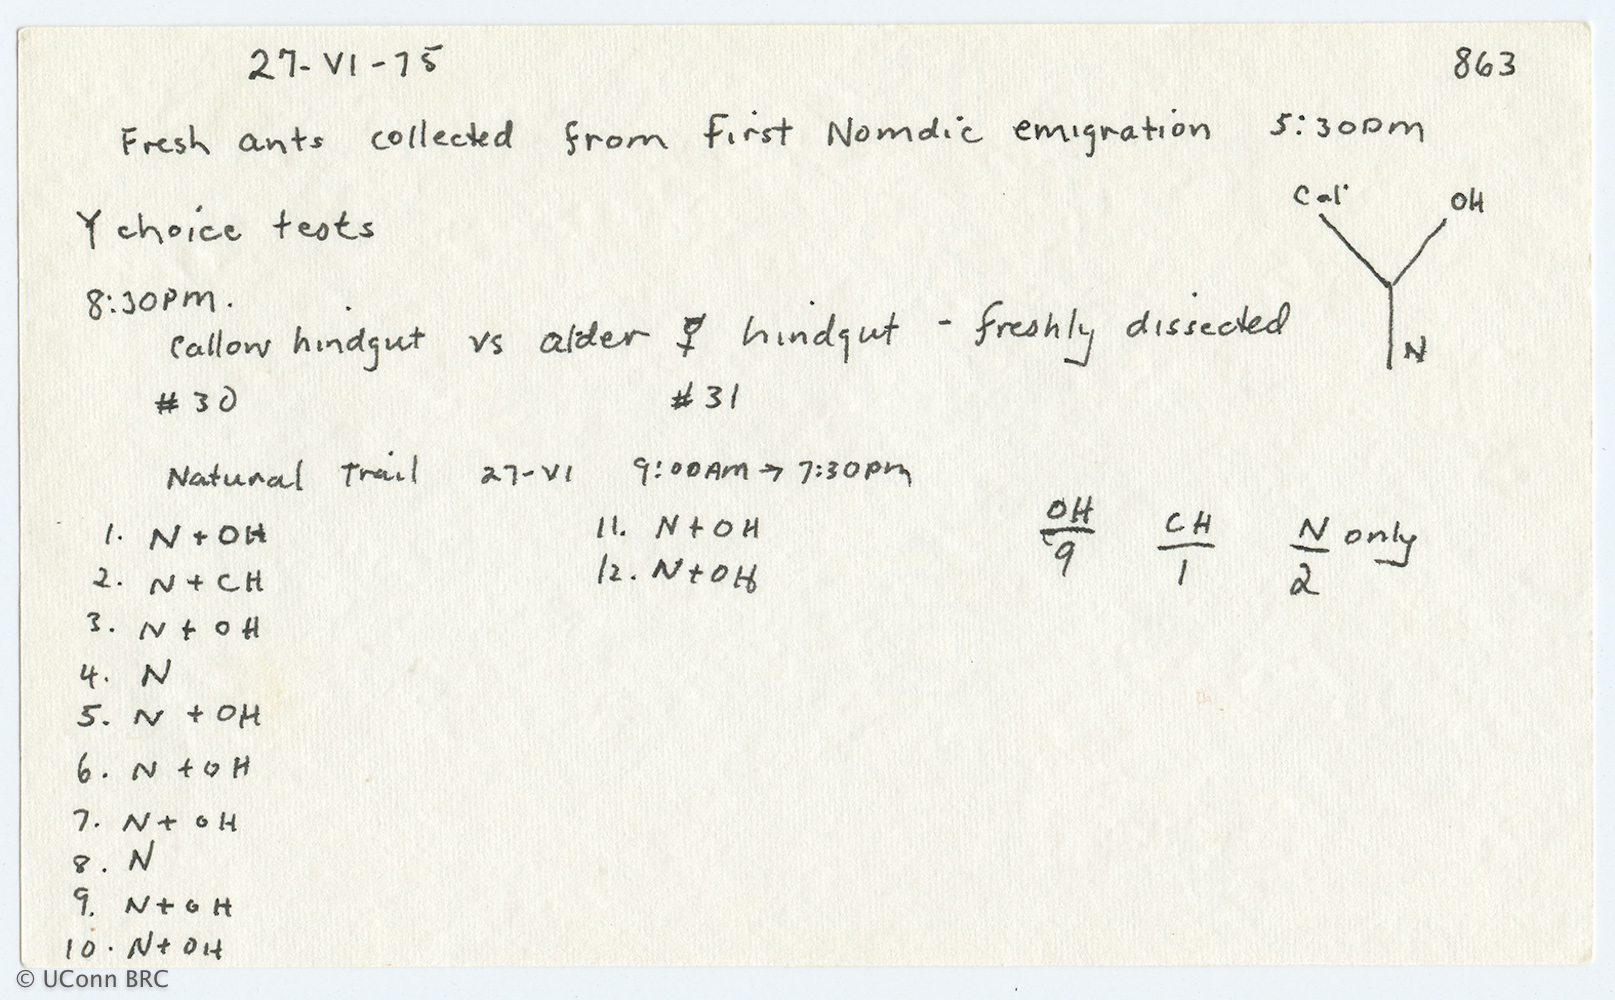 27-VI-75 863
Fresh ants collected from first Nomdic emigration 5:30pm
Cal OH
Y choice tests
8:30pm.
Callow hindgut vs older ☿ hindgut - freshly dissected
N
#30 #31
Natural Trail 27-VI 9:00AM → 7:30pm
1. N + OH 11. N + OH OH CH N only
2. N + CH 12. N + OH 9 1 2
3. N + OH
4. N
5. N + OH
6. N + OH
7. N + OH
8. N
9. N + OH
10. N + OH
© UConn BRC